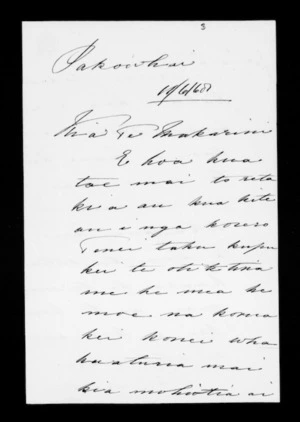 3
Pakowhai
19/6/68
Kia Te Makarini
E hoa kua
tae mai to reta
ki a au kua kite
au i nga korero
Tenei taku kupu
kei te
me he mea he
moe na koma
kei konei wha
kaaturia mai
kia mohiotia ai